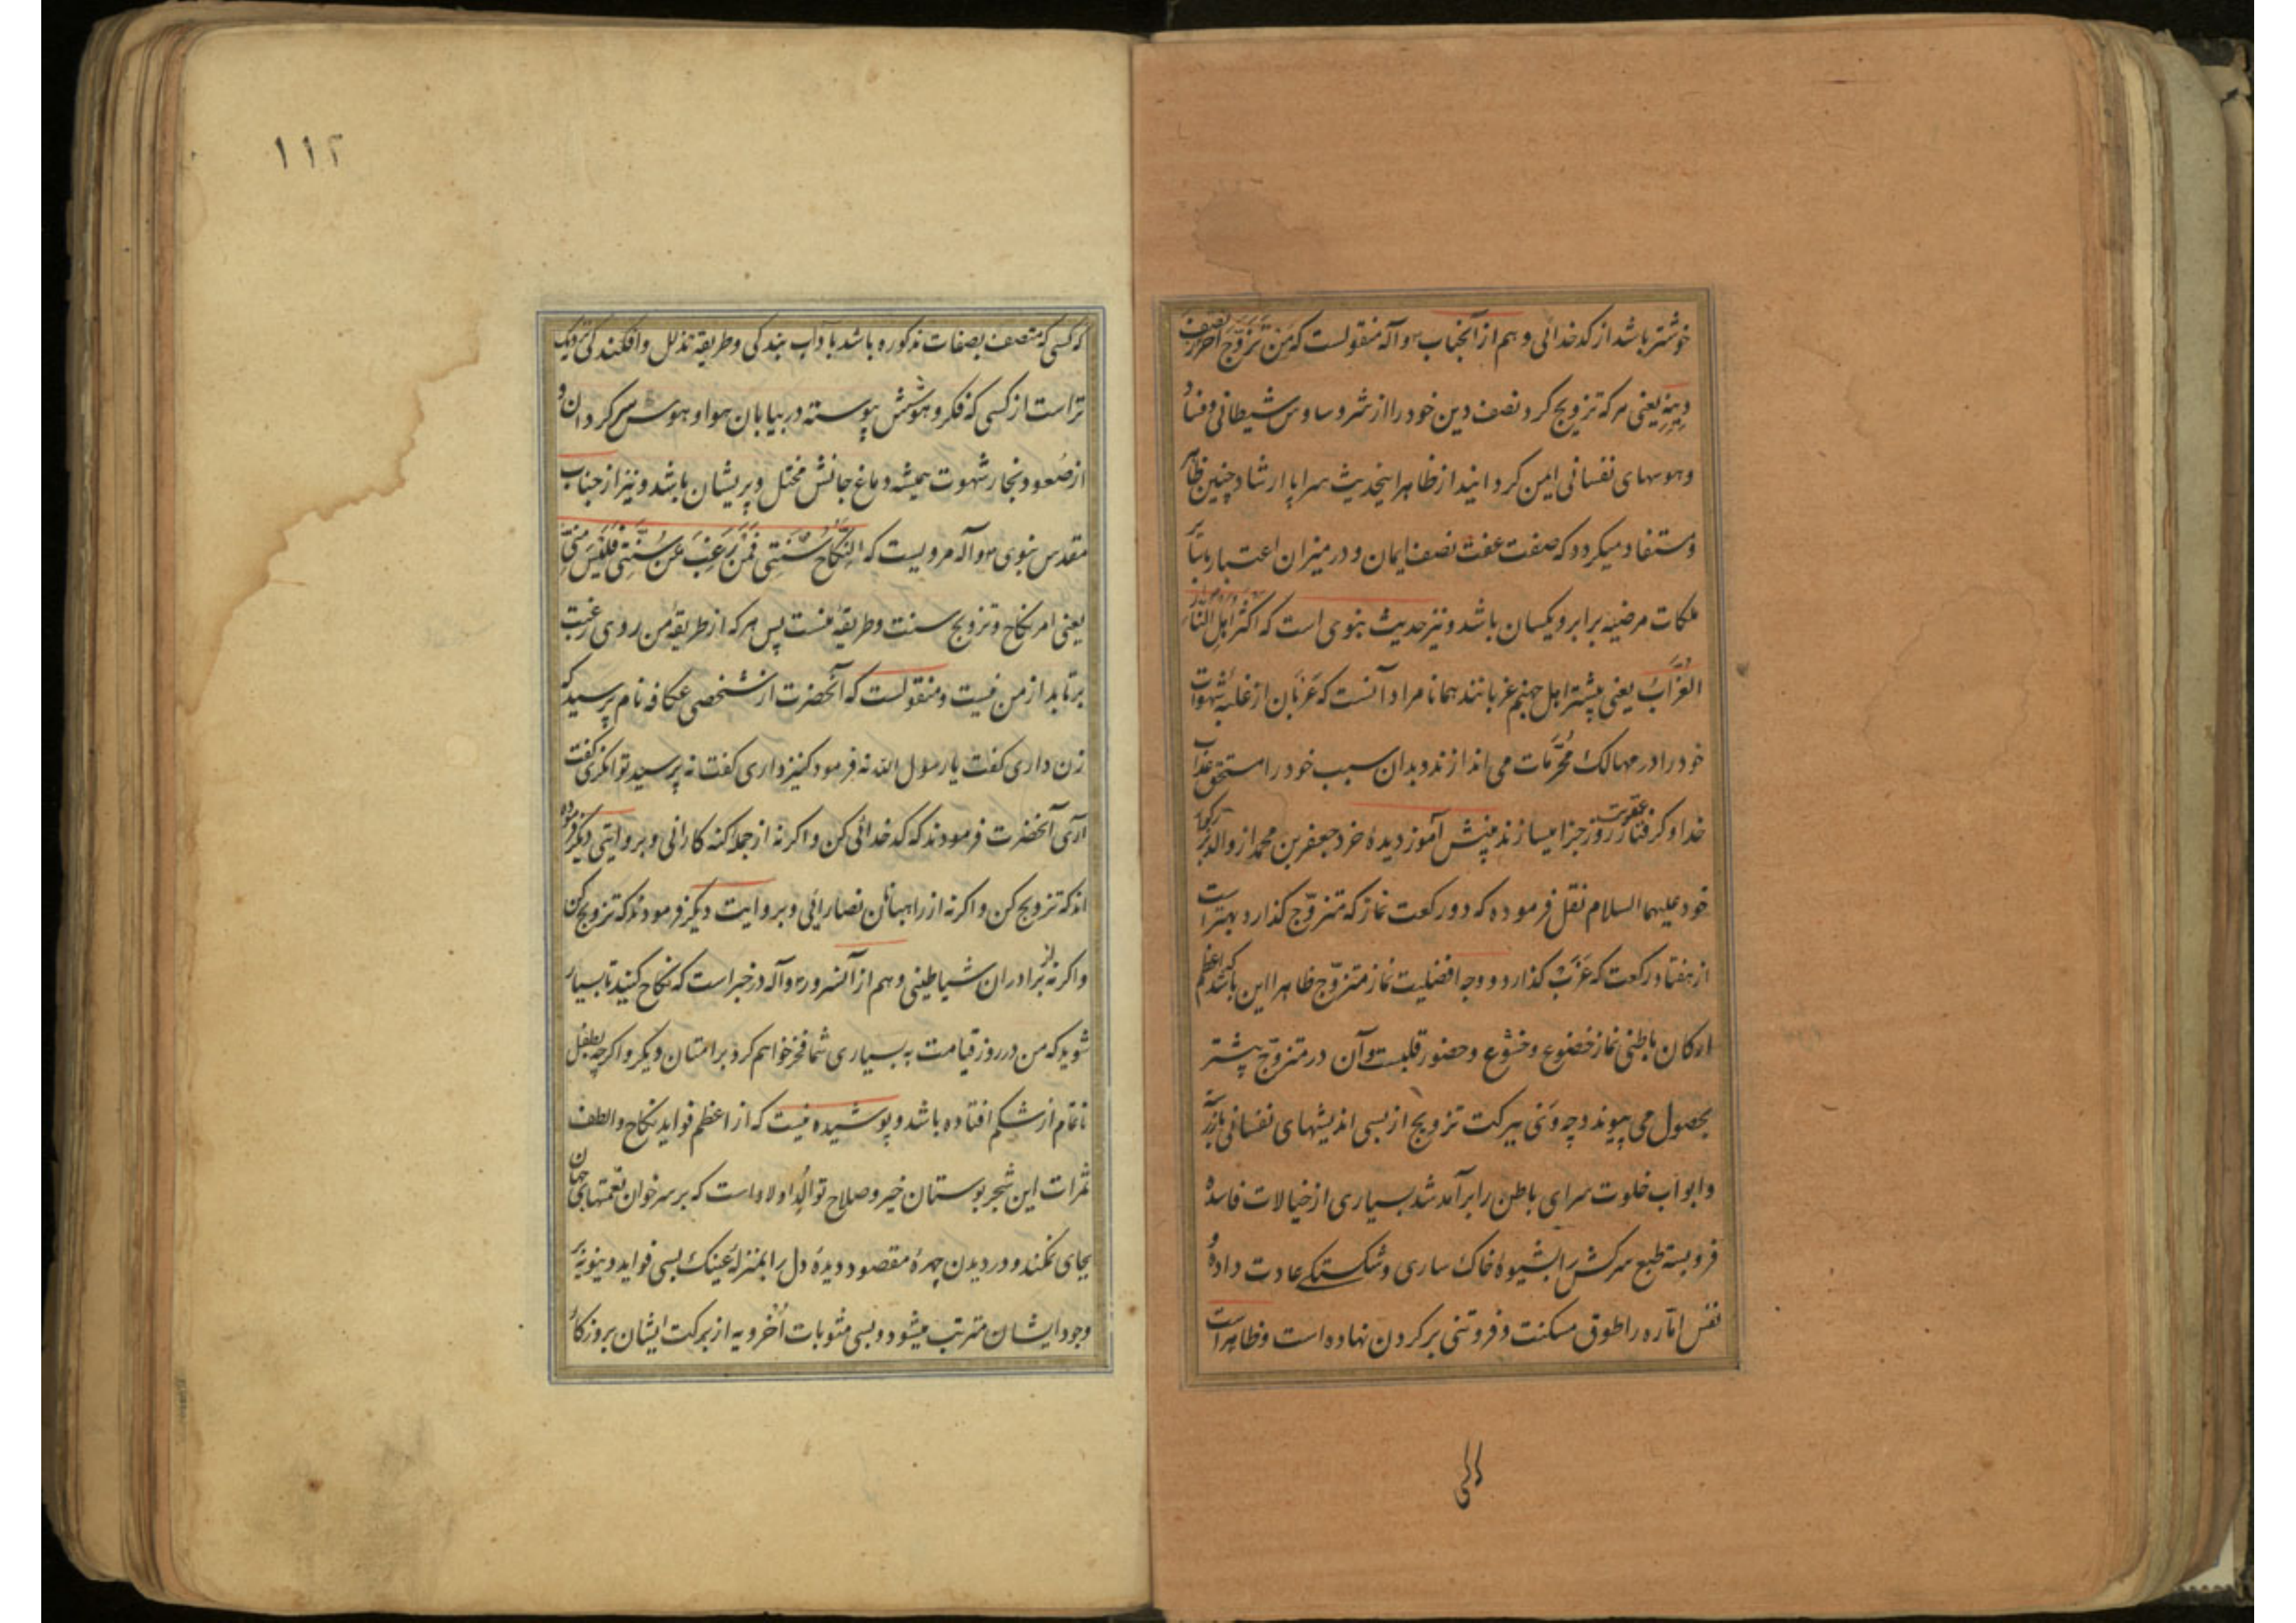 خوشتر باشد از کدخدائی و هم از آنجناب ص وآله منقولست که مَن تَزَوَّجَ اَحْرَزَ نِصْفَ
دِینِهِ یعنی هر که تزویج کرد نصف دین خود را از شر وساوس شیطانی و فساد
و هوسهای نفسانی ایمن گردانید از ظاهر اینحدیث سراپا ارشاد چنین ظاهر
و مستفاد میکردد که صفت عفت نصف ایمان و در میزان اعتبار با سایر
ملکات مرضیه برابر و یکسان باشد و نیز حدیث نبوی است که اکثرُ اَهلِ النّار
العُزّابُ یعنی بیشتر اهل جهنم عزبانند همانا مراد آنست که عَزَبان از غلبهٔ شهوات
خود را در مهالک مُحَرَّمات می اندازند و بدان سبب خود را مستحق عذاب
خدا و گرفتار عقوبت روز جزا میسازند بینش آموز دیدهٔ خرد جعفر بن محمد از والد بزرگوار
خود علیهما السلام نقل فرموده که دو رکعت نماز که متزوّج گذارد بهتر است
از هفتاد رکعت که عَزَبْ گذارد و وجه افضلیت نماز متزوّج ظاهرا این باشد که اعظم
ارکان باطنی نماز خضوع و خشوع و حضور قلبست و آن در متزوّج بیشتر
بحصول می پیوندد چه وَی ببرکت تزویج از بسی اندیشهای نفسانی باز رسته
و ابواب خلوت سرای باطن را بر آمد شد بسیاری از خیالات فاسده
فرو بسته طبع سرکش را بشیوهٔ خاک ساری و شکستگی عادت داده و
نفس امّاره را طوق مسکنت و فروتنی بر کردن نهاده است و ظاهراست
الی
۱۱۲
که کسی که متصف بصفات مذکوره باشد با داب بندکی و طریقه تذلل و افکندکی نزدیک
تراست از کسی که فکر و هوشش پیوسته در بیابان هوا و هوس سرکردان و
از صُعود بخار شهوت همیشه دماغ جانش مختل و پریشان باشد و نیز از جناب
مقدس نبوی ص وآله مرویست که النِّکاحُ سُنَّتِی فَمَنْ رَغِبَ عَن سُنَّتِی فَلَیْسَ مِنِّی
یعنی امر نکاح و تزویج سنت و طریقهٔ منست پس هر که از طریقهٔ من روی رغبت
برتابد از من نیست و منقولست که آنحضرت از شخصی عکافه نام پرسید که
زن داری کفت یا رسول الله نه فرمود کنیز داری کفت نه پرسید توانکری کفت
آری آنحضرت فرمودند که کدخدائی کن و اکرنه از جمله کنه کارانی و بروایتی دیکر فرموده
اند که تزویج کن و اکرنه از راهبانان نصارائی و بروایت دیکر فرمودند که تزویج کن
و اکرنه از برادران شیاطینی و هم از آنسرور ص وآله در خبر است که نکاح کنید تا بسیار
شوید که من در روز قیامت به بسیاری شما فخر خواهم کرد بر امتان دیکر و اکرچه بطفل
ناتمام از شکم افتاده باشد و پوشیده نیست که از اعظم فواید نکاح و الطف
ثمرات این شجر بوستان خیر و صلاح توالُدِ اولاد است که بر سر خوان نعمتهای جهان
بجای نمکند و در دیدن چهرهٔ مقصود دیدهٔ دل را بمنزلهٔ عینک بسی فواید دنیویّه بر
وجود ایشان مترتب میشود و بسی مثوبات اُخرویه از برکت ایشان بروزکار